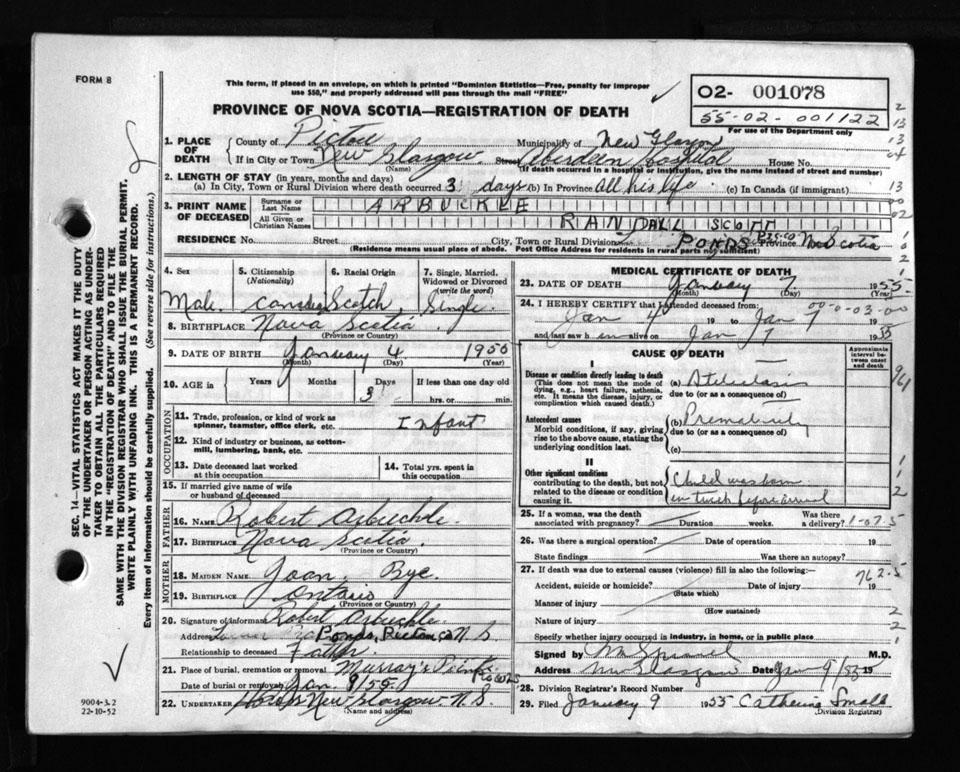 FORM 8
This form, if placed in an envelope, on which is printed "Dominion Statistics—Free, penalty for improper
use $50," and properly addressed will pass through the mail "FREE"
PROVINCE OF NOVA SCOTIA—REGISTRATION OF DEATH
O2- 001078
55-02-001122
For use of the Department only
1. PLACE OF DEATH
County of Pictou Municipality of New Glasgow
If in City or Town New Glasgow Street Aberdeen Hospital House No.
(Name) (If death occurred in a hospital or institution, give the name instead of street and number)
2. LENGTH OF STAY (in years, months and days)
(a) In City, Town or Rural Division where death occurred 3 days (b) In Province all his life (c) In Canada (if immigrant)
3. PRINT NAME OF DECEASED
Surname or Last Name ARBUCKLE
All Given or Christian Names RANDALL SCOTT
RESIDENCE No. Street City, Town or Rural Division PONDS Province N. Scotia
(Residence means usual place of abode. Post Office Address for residents in rural parts not sufficient)
4. Sex
Male
5. Citizenship
(Nationality)
6. Racial Origin
Scotch
7. Single, Married, Widowed or Divorced
(write the word)
Single
8. BIRTHPLACE Nova Scotia
(Province or Country)
9. DATE OF BIRTH January 4 1955
(Month) (Day) (Year)
10. AGE in Years Months Days If less than one day old
3 hrs. or min.
OCCUPATION
11. Trade, profession, or kind of work as spinner, teamster, office clerk, etc. Infant
12. Kind of industry or business, as cotton-mill, lumbering, bank, etc.
13. Date deceased last worked at this occupation
14. Total yrs. spent in this occupation
15. If married give name of wife or husband of deceased
FATHER
16. NAME Robert Arbuckle
17. BIRTHPLACE Nova Scotia
(Province or Country)
MOTHER
18. MAIDEN NAME Joan Bye
19. BIRTHPLACE Ontario
(Province or Country)
20. Signature of informant Robert Arbuckle
Address Ponds, Pictou Co N.S.
Relationship to deceased Father
21. Place of burial, cremation or removal Murray's Point
Date of burial or removal Jan 8/55
22. UNDERTAKER New Glasgow N.S.
(Name and address)
MEDICAL CERTIFICATE OF DEATH
23. DATE OF DEATH January 7 1955
(Month) (Day) (Year)
24. I HEREBY CERTIFY that I attended deceased from:
00-0-03-00
Jan 4 19 to Jan 7 1955
and last saw h im alive on Jan 7 19
CAUSE OF DEATH
Approximate interval between onset and death
I
Disease or condition directly leading to death
(This does not mean the mode of dying, e.g., heart failure, asthenia, etc. It means the disease, injury, or complication which caused death.)
(a)
due to (or as a consequence of)
Antecedent causes
Morbid conditions, if any, giving rise to the above cause, stating the underlying condition last.
(b) Prematurity
due to (or as a consequence of)
(c)
II
Other significant conditions
contributing to the death, but not related to the disease or condition causing it.
Child was born
in truck before arrival
25. If a woman, was the death associated with pregnancy? Duration weeks. Was there a delivery?
26. Was there a surgical operation? Date of operation 19
State findings Was there an autopsy?
27. If death was due to external causes (violence) fill in also the following:—
762-5
Accident, suicide or homicide? Date of injury 19
(State which)
Manner of injury
(How sustained)
Nature of injury
Specify whether injury occurred in industry, in home, or in public place
Signed by M.D.
Address New Glasgow Date Jan 9/55 19
28. Division Registrar's Record Number
29. Filed January 9 1955 Catherine Small
(Division Registrar)
SEC. 14—VITAL STATISTICS ACT MAKES IT THE DUTY
OF THE UNDERTAKER OR PERSON ACTING AS UNDER-
TAKER TO OBTAIN ALL THE PARTICULARS REQUIRED
IN THE "REGISTRATION OF DEATH" AND TO FILE THE
SAME WITH THE DIVISION REGISTRAR WHO SHALL ISSUE THE BURIAL PERMIT.
WRITE PLAINLY WITH UNFADING INK. THIS IS A PERMANENT RECORD.
Every item of information should be carefully supplied. (See reverse side for instructions.)
9004-3.2
22-10-52